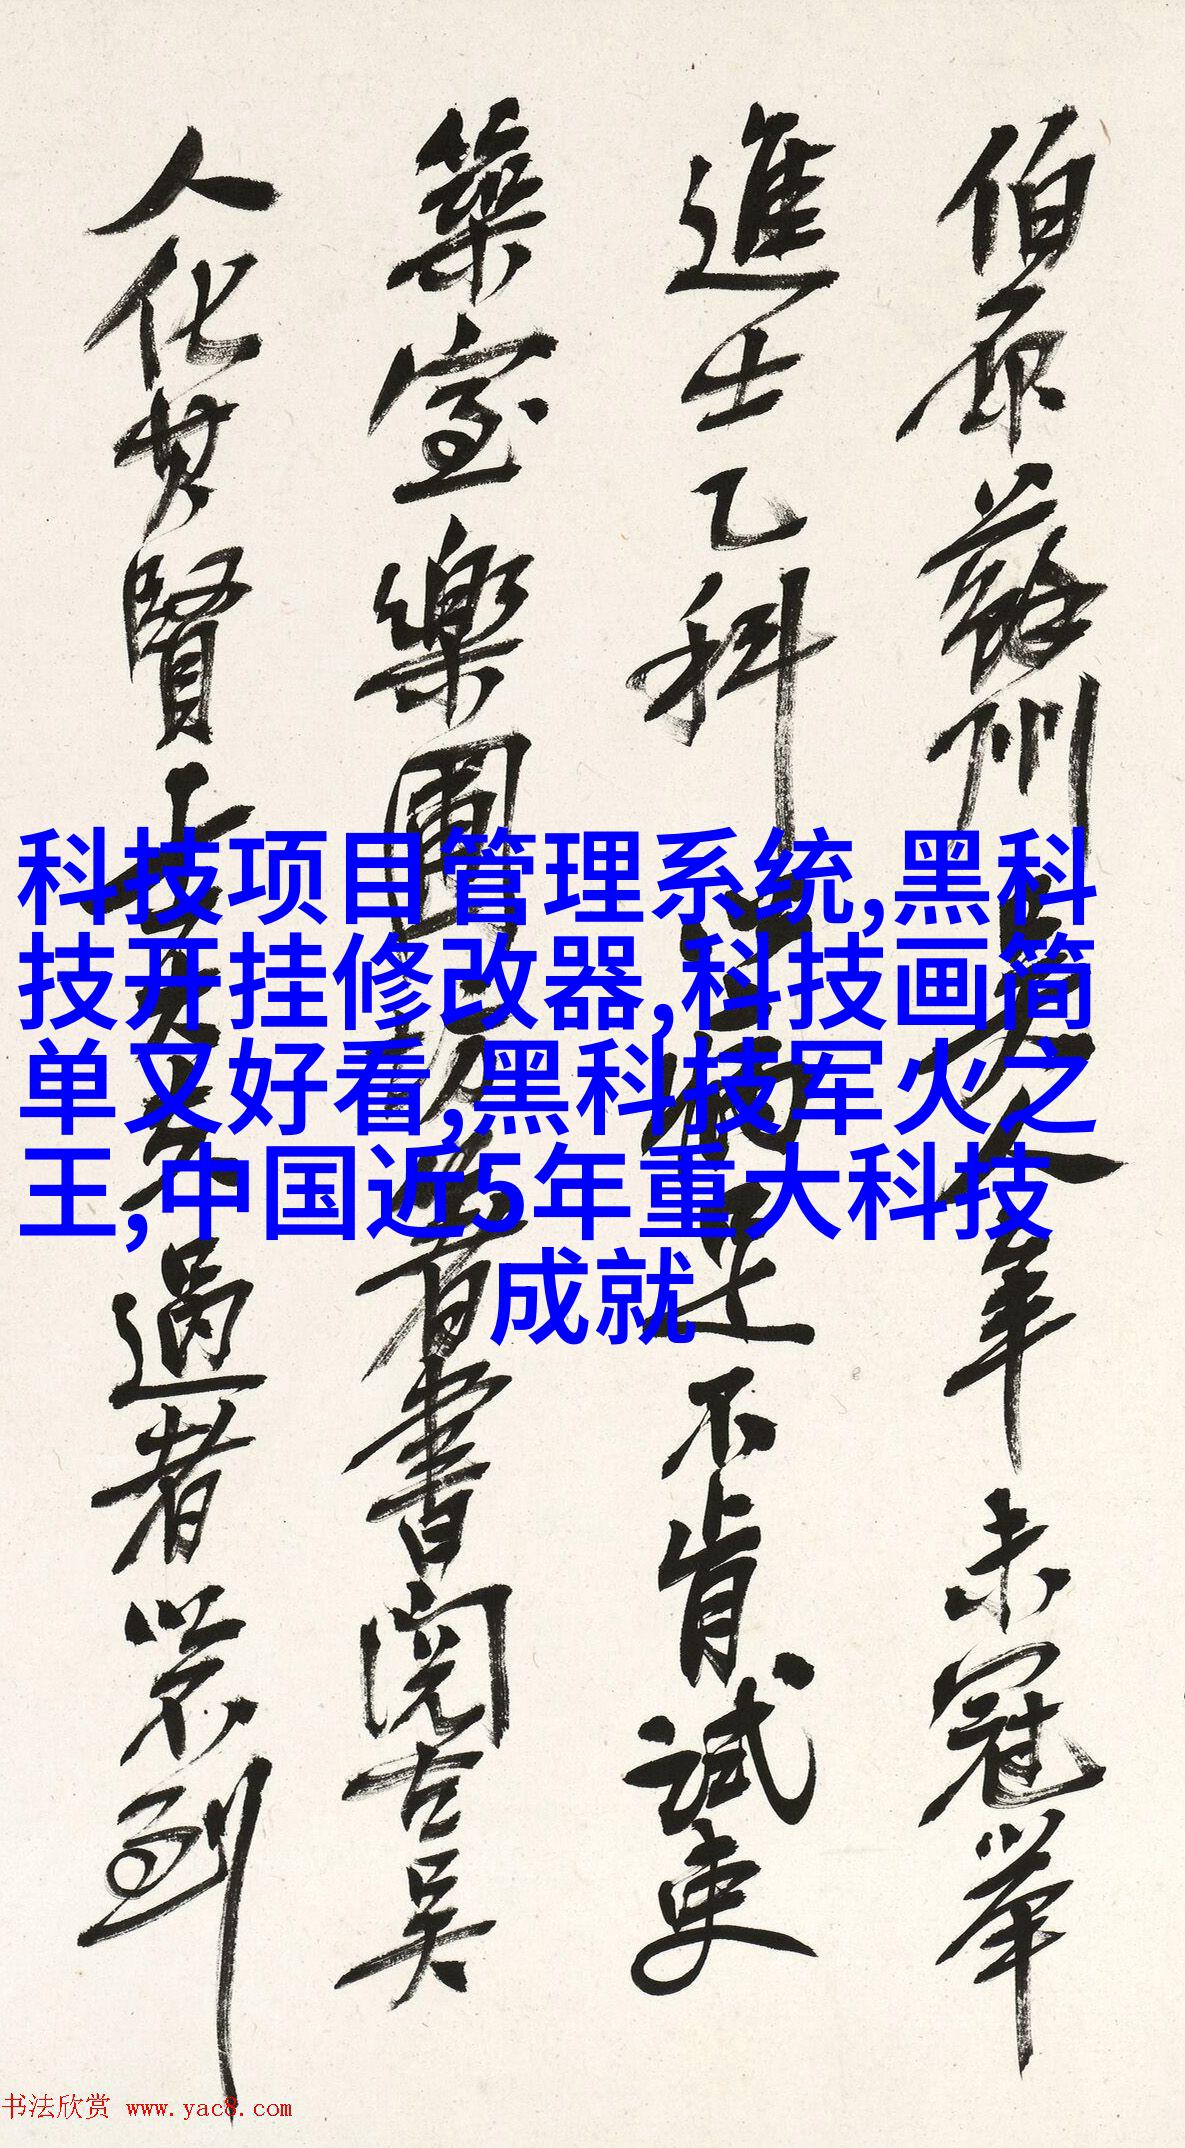 伯原蘇州吳人年未冠舉
進士乙科
足不肯試吏
築室樂圃
著書閱古吳
人化其賢
過者必
到
科技项目管理系统,黑科
技开挂修改器,科技画简
单又好看,黑科技军火之
王,中国近5年重大科技
成就
书法欣赏 www.yac8.com